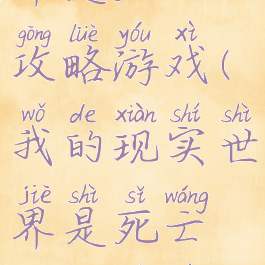 gōng lüè yóu xì
攻略游戏(
wǒ de xiàn shí shì
我的现实世
jiè shì sǐ wáng
界是死亡